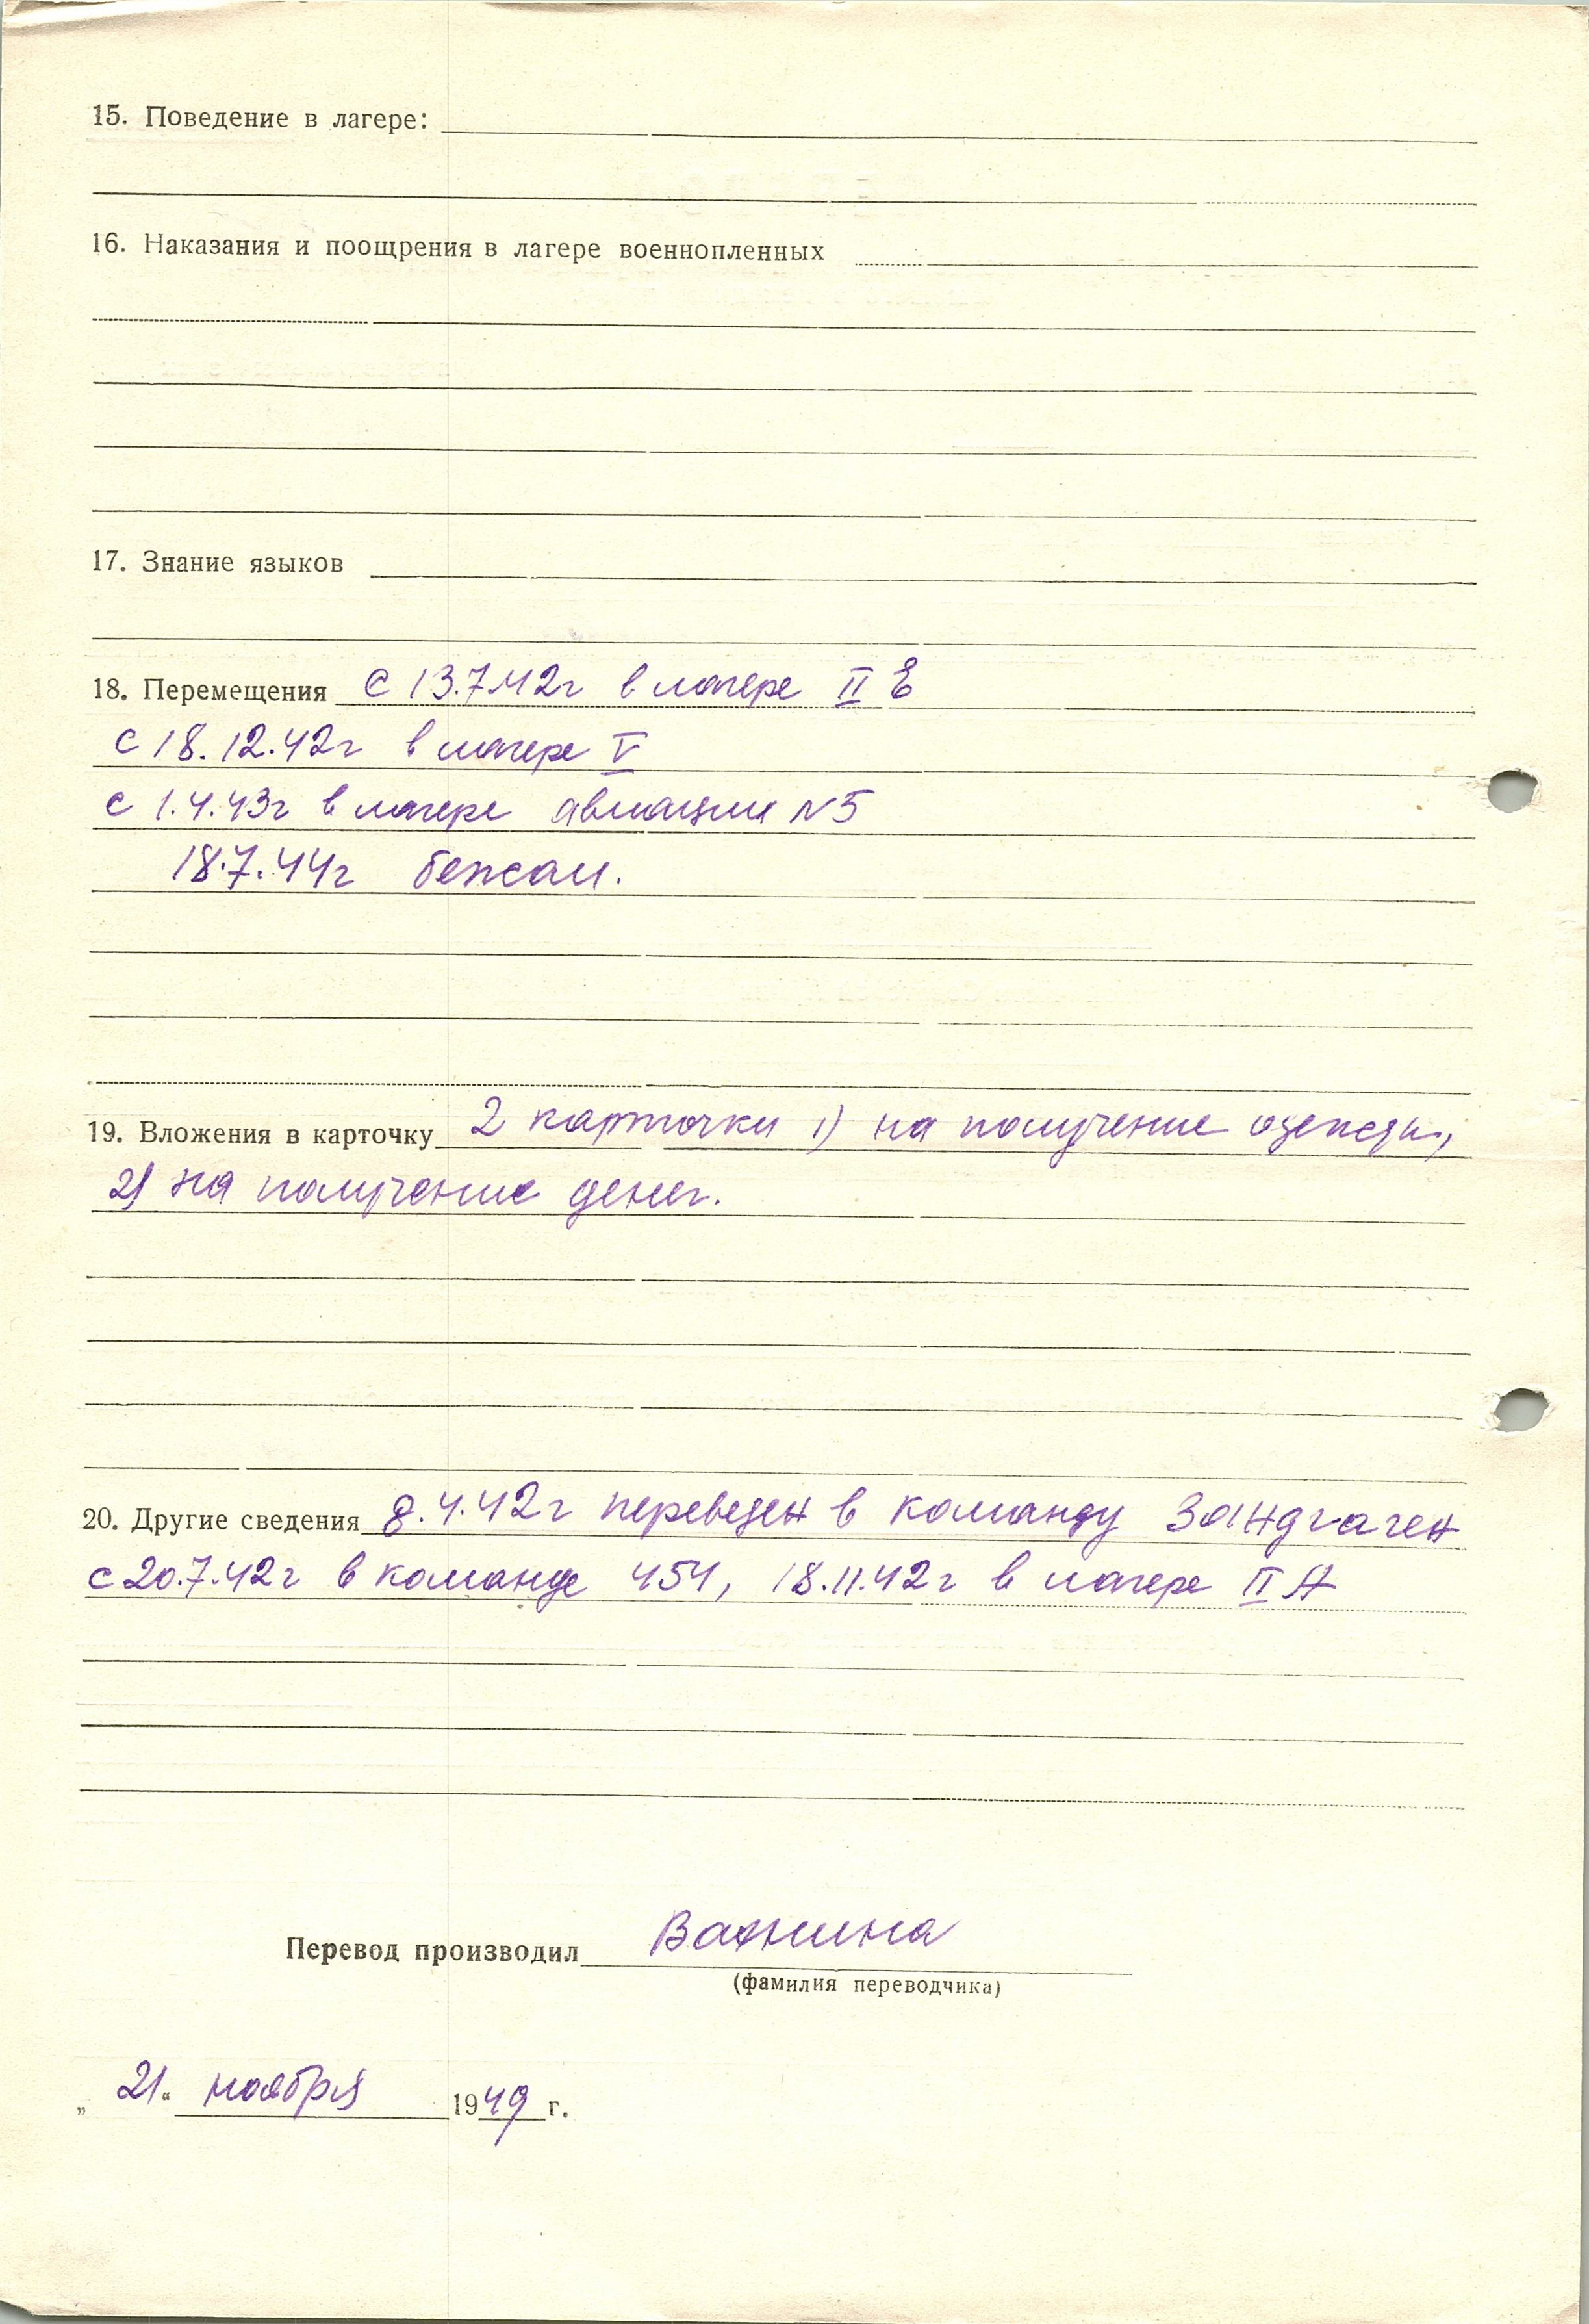 15. Поведение в лагере:
16. Наказания и поощрения в лагере военнопленных
17. Знание языков
18. Перемещения с 13.7.42г в лагере II Е
с 18.12.42г в лагере V
с 1.4.43г в лагере авиации N5
18.7.44г бежал.
19. Вложения в карточку 2 карточки 1) на получение одежды,
2) на получение денег.
20. Другие сведения 8.4.42г переведен в команду Зандгаген
с 20.7.42г в команде 454, 18.11.42г в лагере II А
Перевод производил Вахнина
(фамилия переводчика)
„ 21 “ ноября 1949 г.